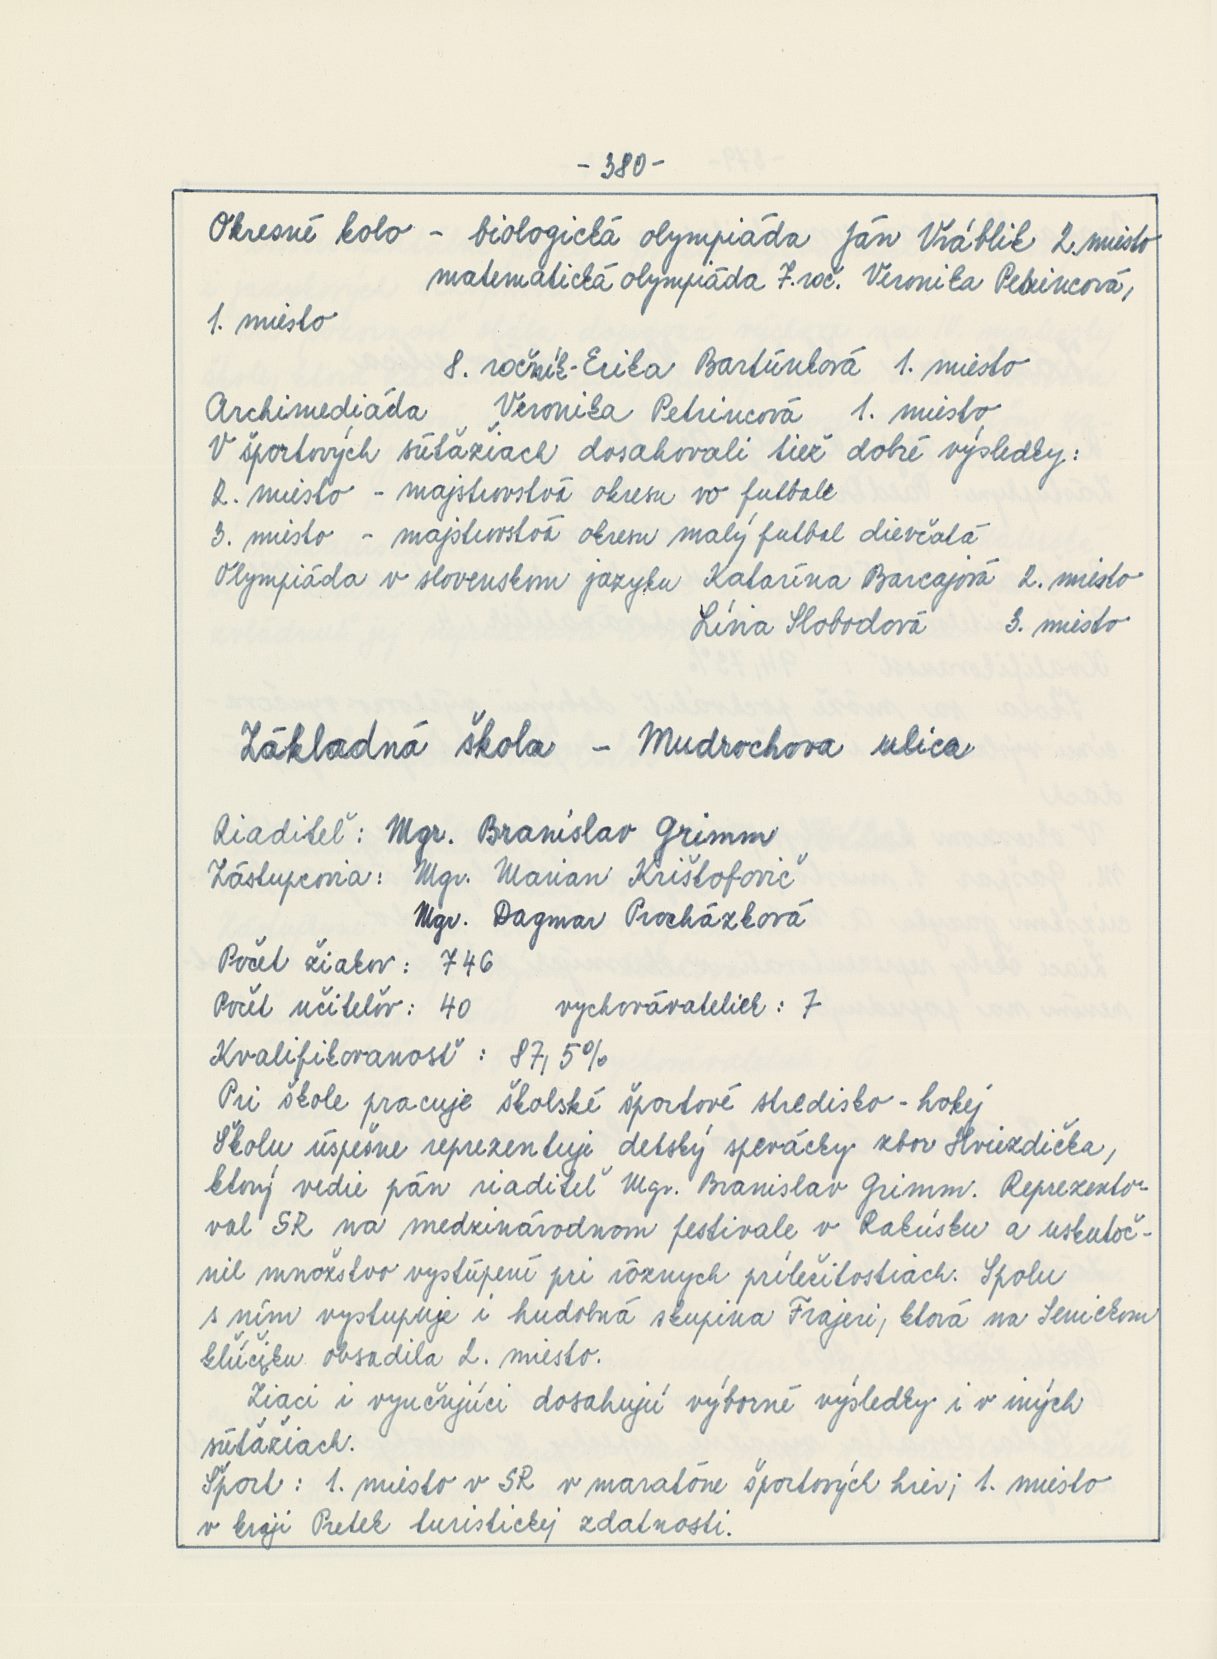 - 380 -
Okresné kolo - biologická olympiáda Ján Vráblik 2. miesto
matematická olympiáda 7. roč. Veronika Petrincová,
1. miesto
8. ročník - Erika Bartúnková 1. miesto
Archimediáda Veronika Petrincová 1. miesto
V športových súťažiach dosahovali tiež dobré výsledky:
2. miesto - majstrovstvá okresu vo futbale
3. miesto - majstrovstvá okresu malý futbal dievčatá
Olympiáda v slovenskom jazyku Katarína Barcajová 2. miesto
Lívia Slobodová 3. miesto
Základná škola - Mudrochova ulica
Riaditeľ: Mgr. Branislav Grimm
Zástupcovia: Mgr. Marian Krištofovič
Mgr. Dagmar Procházková
Počet žiakov: 746
Počet učiteľov: 40 vychovávateliek: 7
Kvalifikovanosť: 87,5%
Pri škole pracuje školské športové stredisko - hokej
Školu úspešne reprezentuje detský spevácky zbor Hviezdička,
ktorý vedie pán riaditeľ Mgr. Branislav Grimm. Reprezento-
val SR na medzinárodnom festivale v Rakúsku a uskutoč-
nil množstvo vystúpení pri rôznych príležitostiach. Spolu
s ním vystupuje i hudobná skupina Frajeri, ktorá na Senickom
kľúčiku obsadila 2. miesto.
Žiaci i vyučujúci dosahujú výborné výsledky i v iných
súťažiach.
Šport: 1. miesto v SR v maratóne športových hier; 1. miesto
v kraji Pretek turistickej zdatnosti.